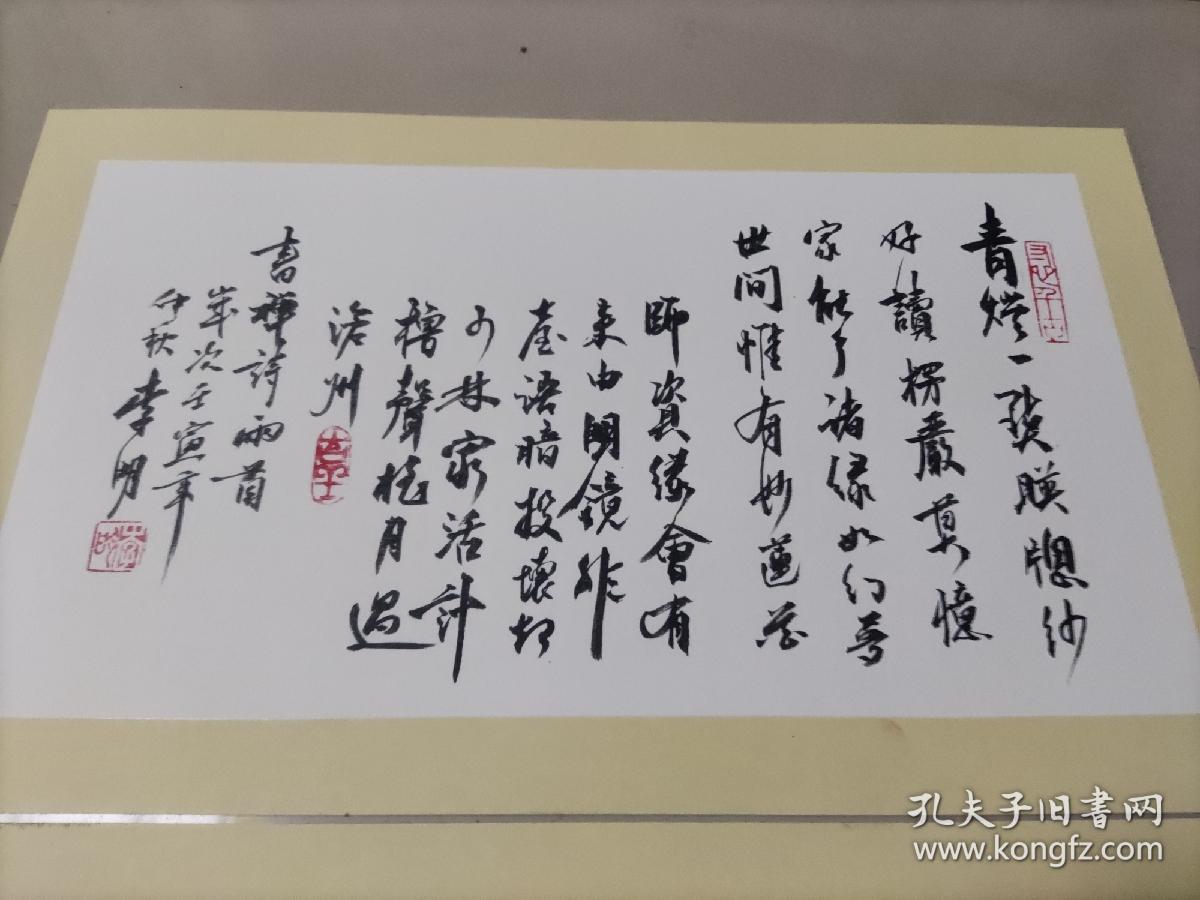 青燈一點映牕紗
好讀楞嚴莫憶
家能了諸緣如幻夢
世間惟有妙蓮花
師資緣會有
來由明鏡非
臺語暗投壞却
少林家活計
櫓聲搖月過
滄州
書禪詩兩首
歲次壬寅年
仲秋 李明
孔夫子旧书网
www.kongfz.com